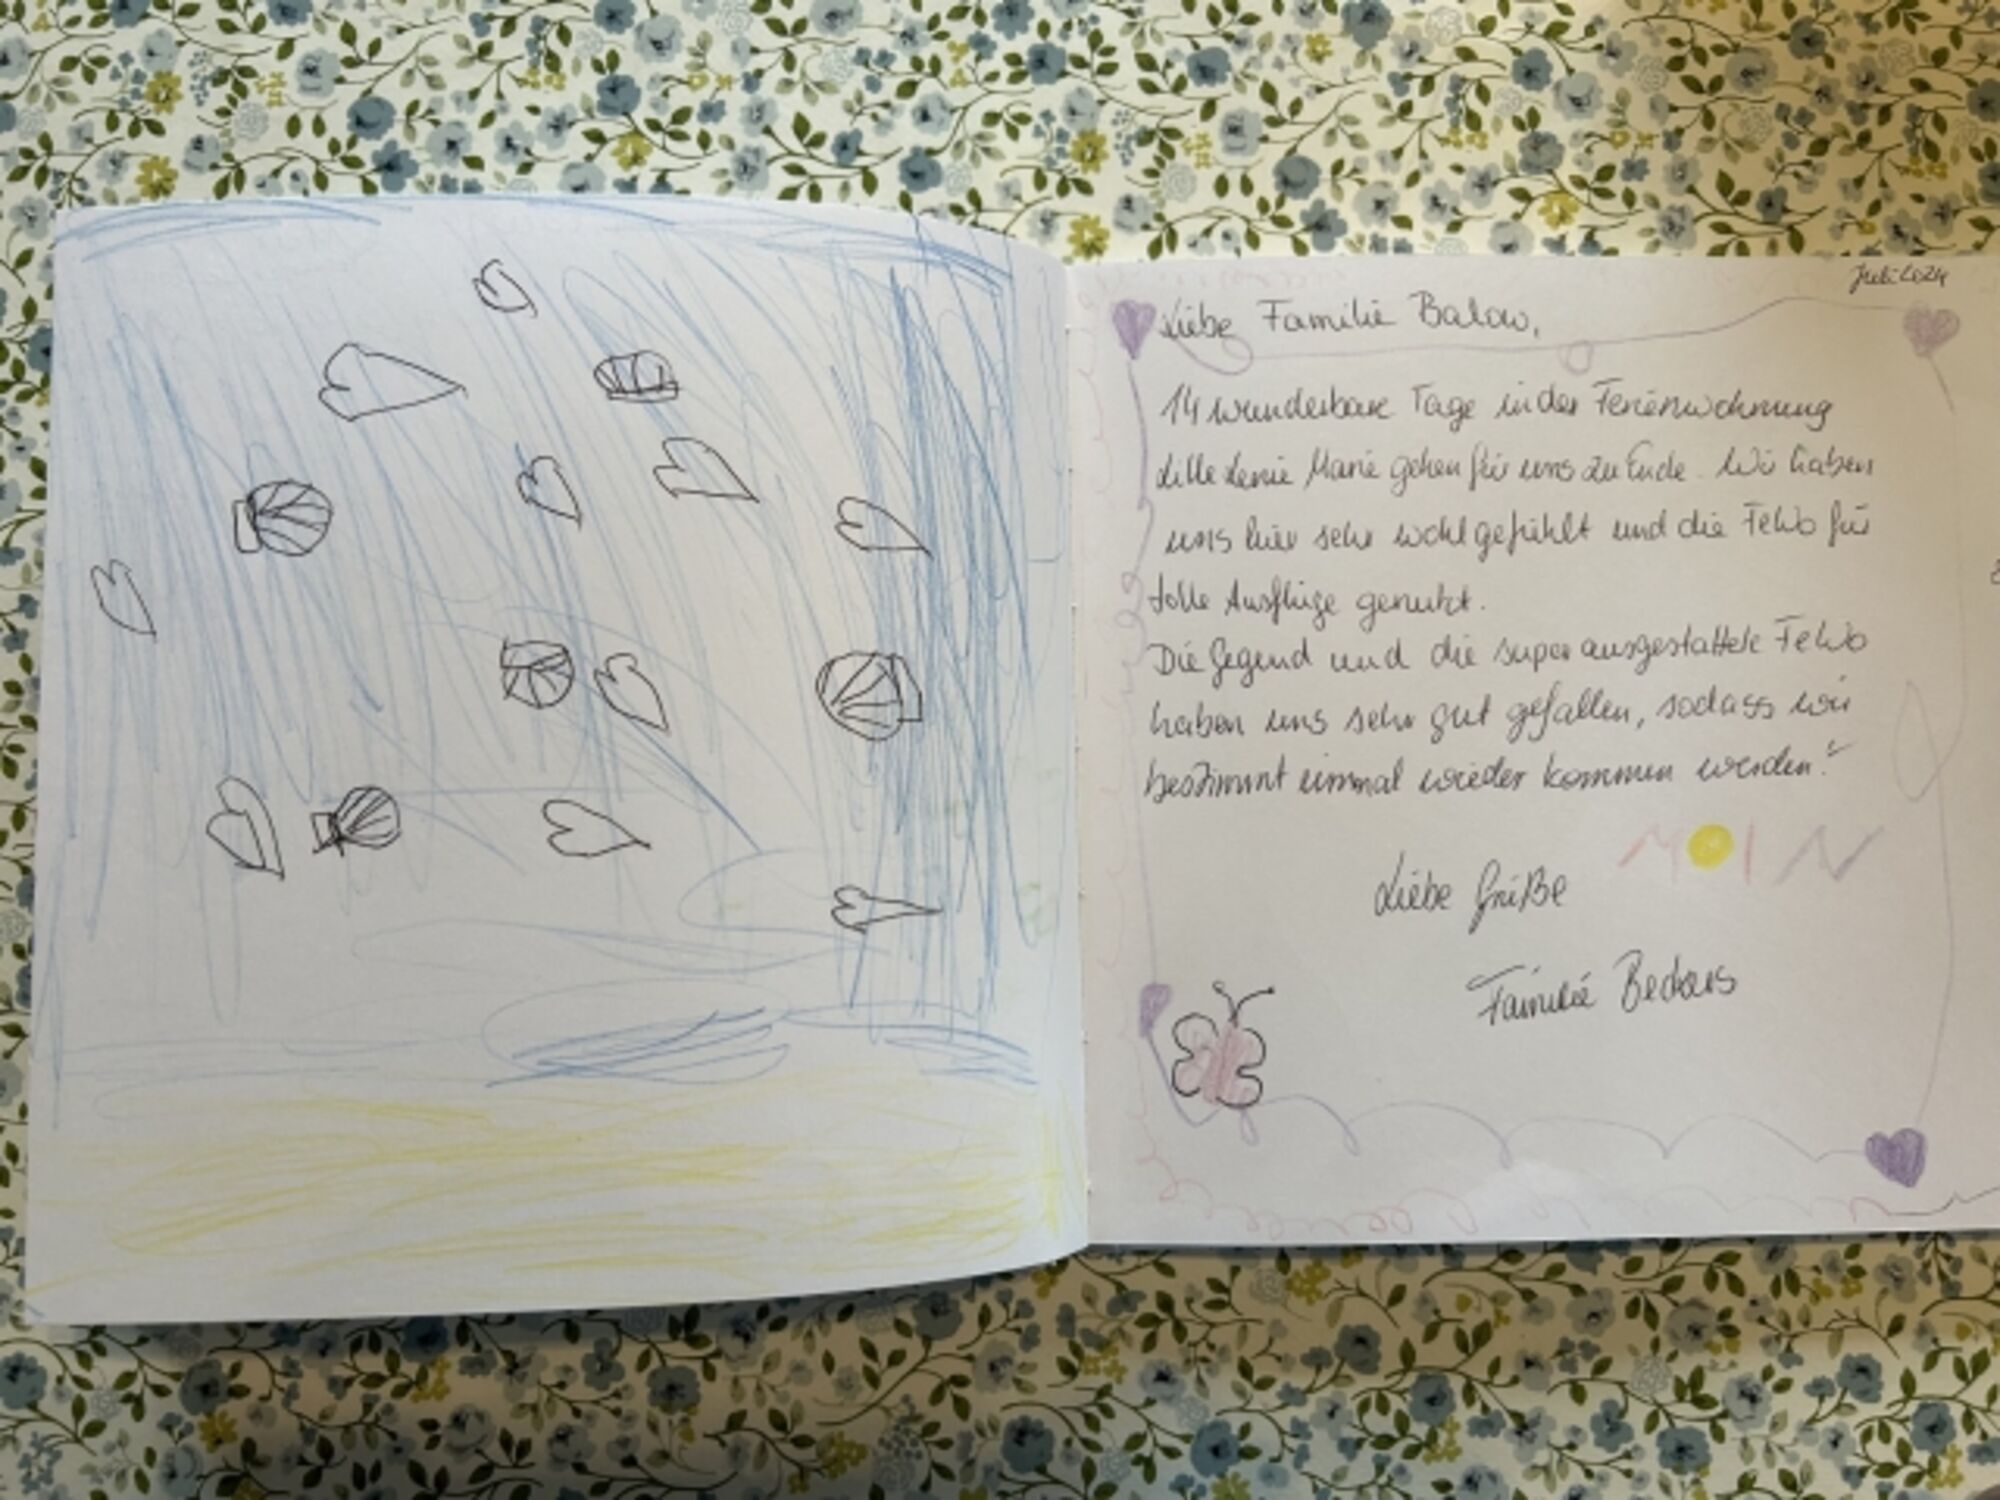 Juli 2024
Liebe Familie Balow,
14 wunderbare Tage in der Ferienwohnung
Lille Lenie Marie gehen für uns zu Ende. Wir haben
uns hier sehr wohl gefühlt und die FeWo für
tolle Ausflüge genutzt.
Die Gegend und die super ausgestattete FeWo
haben uns sehr gut gefallen, sodass wir
bestimmt einmal wieder kommen werden!
MOIN
Liebe Grüße
Familie